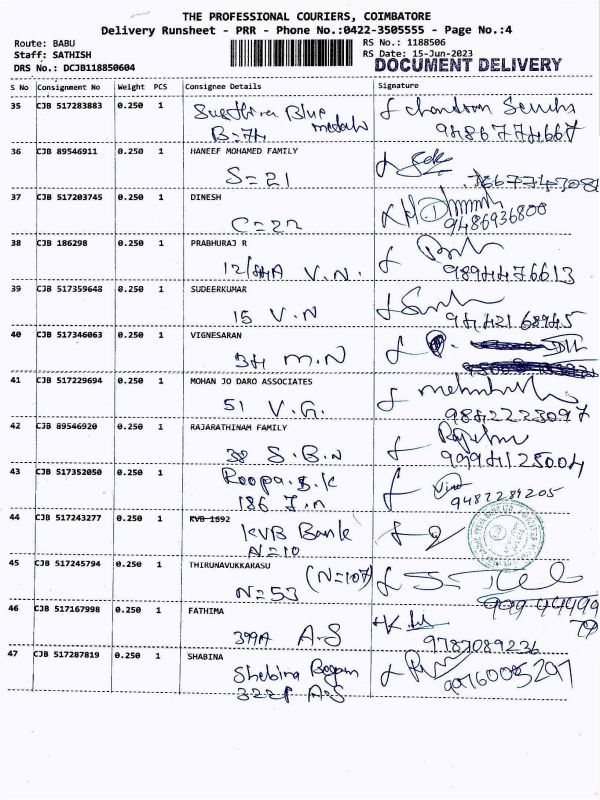 THE PROFESSIONAL COURIERS, COIMBATORE
Delivery Runsheet - PRR - Phone No.:0422-3505555 - Page No.:4
Route: BABU RS No.: 1188506
Staff: SATHISH RS Date: 15-Jun-2023
DRS No.: DCJB118850604 DOCUMENT DELIVERY
S No Consignment No Weight PCS Consignee Details Signature
35 CJB 517283883 0.250 1 Blue
B=74 9486774667
36 CJB 89546911 0.250 1 HANEEF MOHAMED FAMILY
S=21
37 CJB 517203745 0.250 1 DINESH
C=22 9486936800
38 CJB 186298 0.250 1 PRABHURAJ R
12/84A V.N. 9894476613
39 CJB 517359648 0.250 1 SUDEERKUMAR
15 V.N 94421 68945
40 CJB 517346063 0.250 1 VIGNESARAN
34 M.N
41 CJB 517229694 0.250 1 MOHAN JO DARO ASSOCIATES
51 V.G. 9842223097
42 CJB 89546920 0.250 1 RAJARATHINAM FAMILY
38 S.B.N 9994125004
43 CJB 517352050 0.250 1 Roopa.S.K
186 J.N 9487289205
44 CJB 517243277 0.250 1 KVB 1692
KVB Bank
N=10
45 CJB 517245794 0.250 1 THIRUNAVUKKARASU
N=53 (N=107)
46 CJB 517167998 0.250 1 FATHIMA
399A A.S 9787089236
47 CJB 517287819 0.250 1 SHABINA
Shebina Begam 9976005297
322F A.S